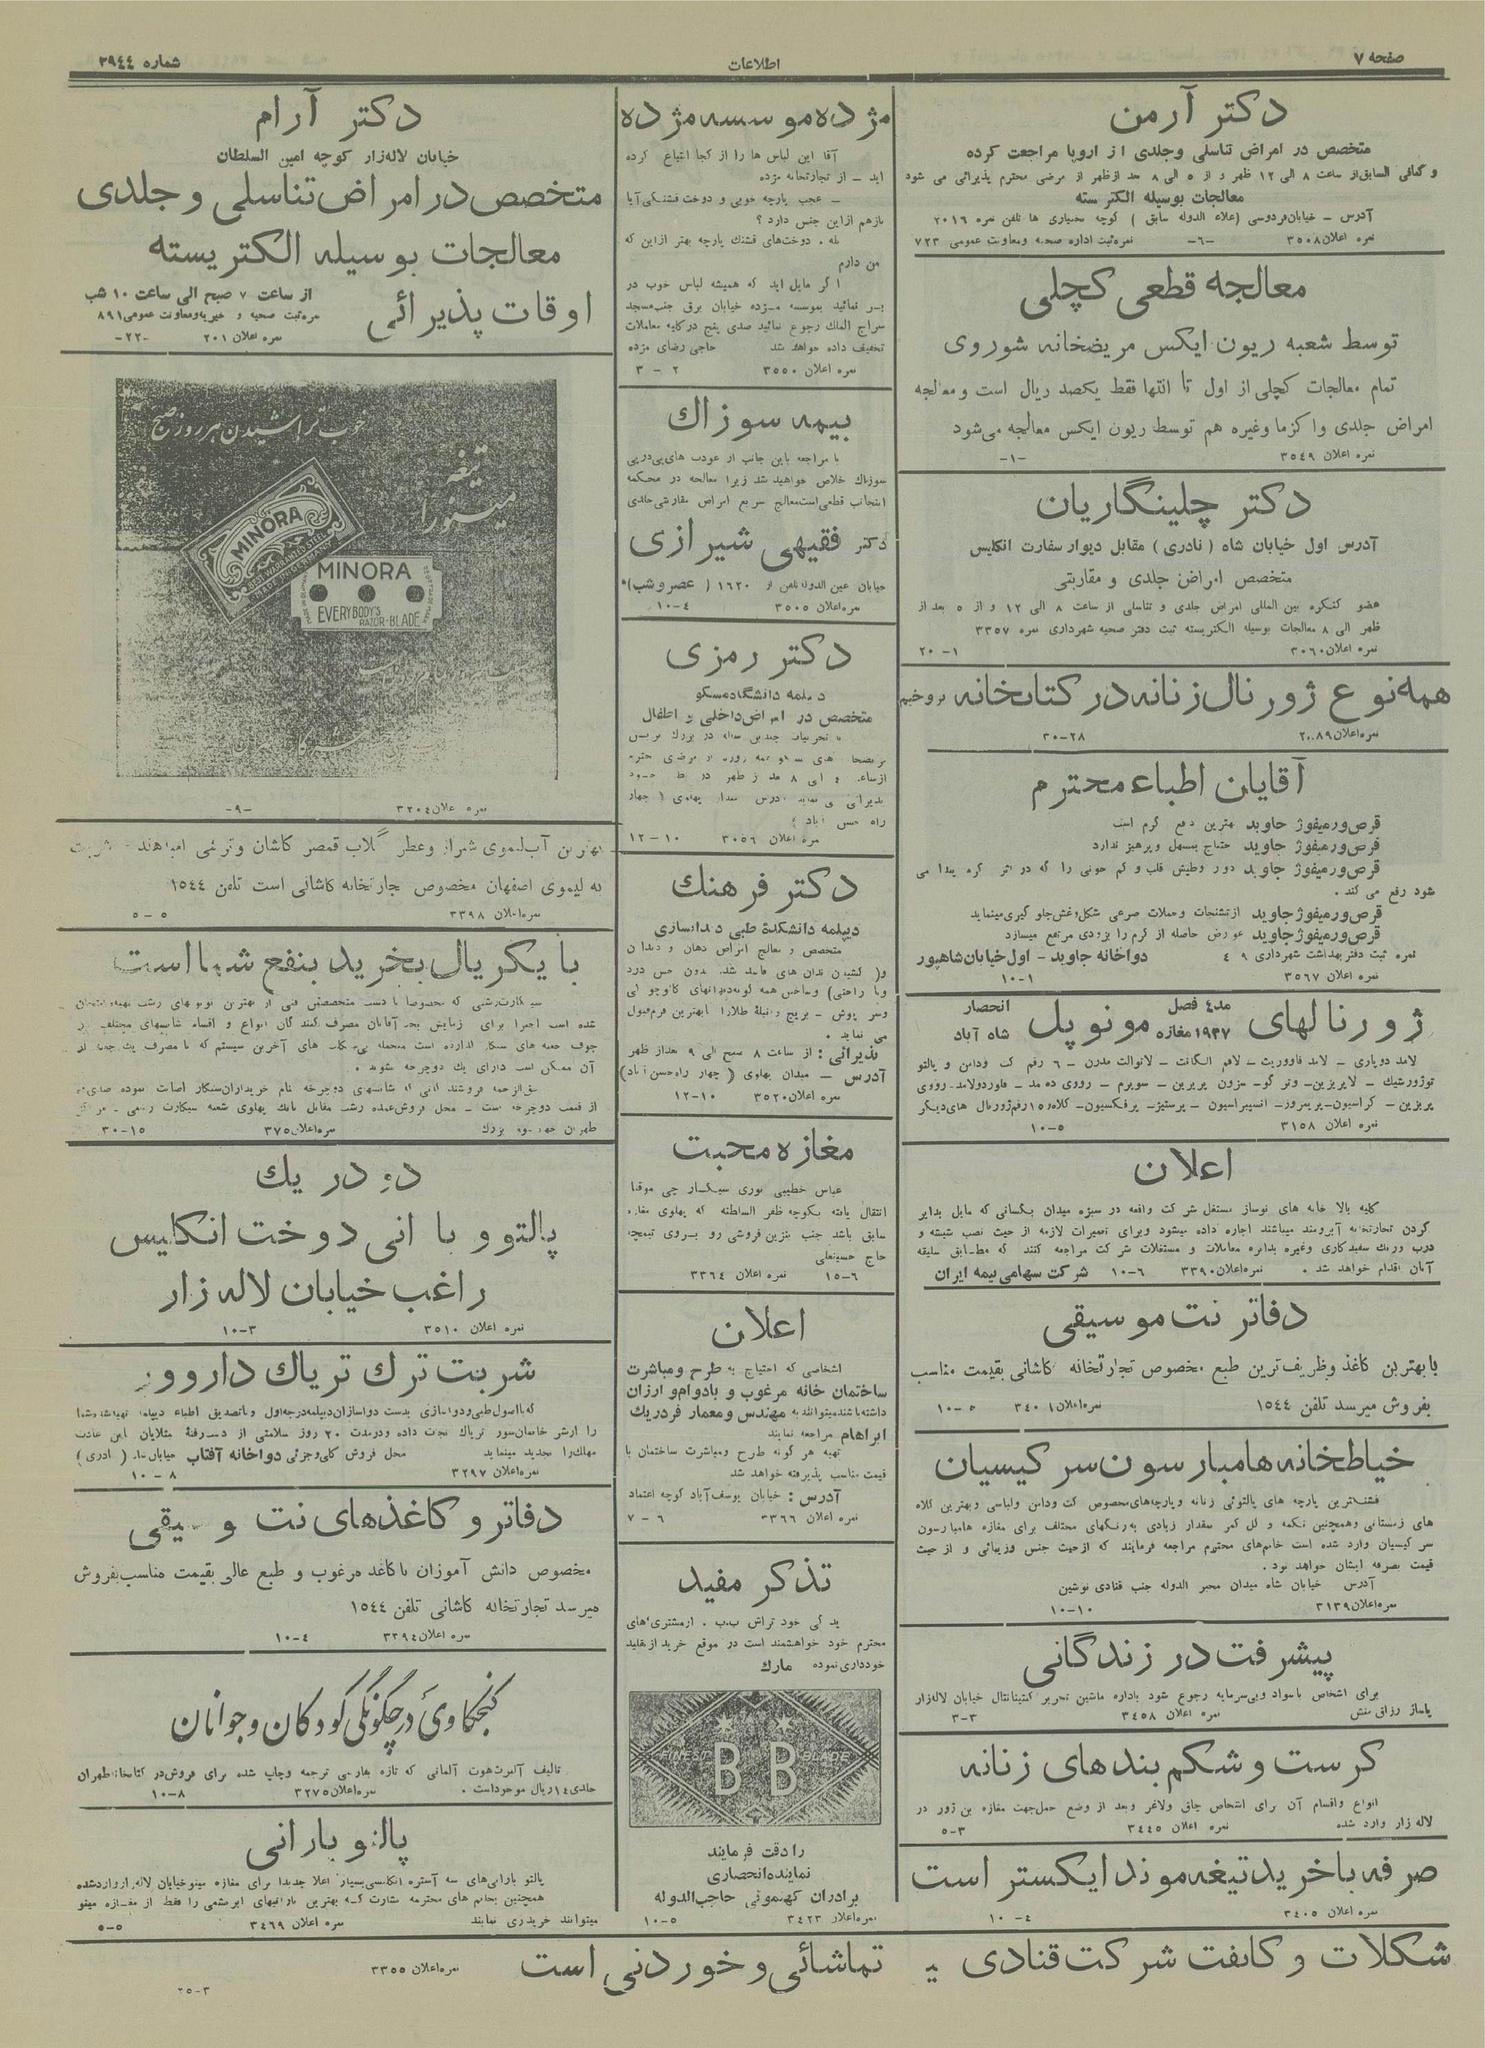 صفحه ۷
اطلاعات
شماره ۳۹٤٤
دکتر آرمن
متخصص در امراض تناسلی وجلدی از اروپا مراجعت کرده
و کمافی السابق از ساعت ۸ الی ۱۲ ظهر و از ۵ الی ۸ بعد ازظهر از مرضی محترم پذیرائی می شود
معالجات بوسیله الکتریسته
آدرس - خیابان فردوسی (علاء الدوله سابق ) کوچه بختیاری ها تلفن نمره ۲۰۱٦
نمره اعلان ۳۵۰۸ -٦- نمره ثبت اداره صحیه ومعاونت عمومی ۷۲۳
معالجه قطعی کچلی
توسط شعبه ریون ایکس مریضخانه شوروی
تمام معالجات کچلی از اول تا انتها فقط یکصد ریال است و معالجه
امراض جلدی واگزما وغیره هم توسط ریون ایکس معالجه می‌شود
نمره اعلان ۳۵٤۹ -۱-
دکتر چلینگاریان
آدرس اول خیابان شاه ( نادری ) مقابل دیوار سفارت انگلیس
متخصص امراض جلدی و مقاربتی
عضو کنگره بین المللی امراض جلدی و تناسلی از ساعت ۸ الی ۱۲ و از ۵ بعد از
ظهر الی ۸ معالجات بوسیله الکتریسته ثبت دفتر صحیه شهرداری نمره ۳۳۵۷
نمره اعلان ۳۰٦۰ ۱-۲۰
همه نوع ژورنال زنانه در کتابخانه بروخیم
نمره اعلان ۲۰۸۹ ۲۸-۳۰
آقایان اطباء محترم
قرص ورمیفوژ جاوید بهترین دفع کرم است
قرص ورمیفوژ جاوید احتیاج بمسهل وپرهیز ندارد
قرص ورمیفوژ جاوید دوار وطپش قلب و کم خونی را که در اثر کرم پیدا می
شود رفع می کند .
قرص ورمیفوژ جاوید از تشنجات وحملات صرعی شکل وغش جلو گیری مینماید
قرص ورمیفوژ جاوید عوارض حاصله از کرم را بزودی مرتفع میسازد
نمره ثبت دفتر بهداشت شهرداری ٤۹ دواخانه جاوید - اول خیابان شاهپور
نمره اعلان ۳۵٦۷ ۱-۱۰
ژورنالهای مد٤ فصل ۱۹۳۷ مغازه مونوپل انحصار شاه آباد
توژورشیک - لاپریزین- وترگو- مزون پریزین - سوپرم - رووی ده مد - فاوردولامد- رووی
پریزین - کراسیون- پریمرور- انسپیراسیون - پرستیژ- پرفکسیون- کلاه و۱۵ رقم ژورنال های دیگر
نمره اعلان ۳۱۵۸ ۵-۱۰
اعلان
کلیه بالا خانه های نوساز مستغل شرکت واقعه در سبزه میدان بکسانی که مایل بدایر
کردن تجارتخانه آبرومند میباشند اجاره داده میشود وبرای تعمیرات لازمه از حیث نصب شیشه و
درب ورنگ سفید کاری وغیره بدائره معاملات و مستغلات شرکت مراجعه کنند که مطابق سلیقه
آنان اقدام خواهد شد . نمره اعلان ۳۳۹۰ ٦-۱۰ شرکت سهامی بیمه ایران
دفاتر نت موسیقی
با بهترین کاغذ وظریف ترین طبع مخصوص تجارتخانه کاشانی بقیمت مناسب
بفروش میرسد تلفن ۱۵٤٤ نمره اعلان ۳٤۰۱ ۵-۱۰
خیاطخانه هامبارسون سرکیسیان
قشنگترین پارچه های پالتوئی زنانه وپارچه‌های مخصوص کت ودامن ولباسی وبهترین کلاه
های زمستانی وهمچنین تکمه و گل کمر مقدار زیادی به‌رنگهای مختلف برای مغازه هامبارسون
سرکیسیان وارد شده است خانم‌های محترم مراجعه فرمایند که ازحیث جنس وزیبائی و از حیث
قیمت بصرفه ایشان خواهد بود.
آدرس خیابان شاه میدان مخبر الدوله جنب قنادی نوشین
نمره اعلان ۳۱۳۹ ۱۰-۱۰
پیشرفت در زندگانی
برای اشخاص باسواد وبی‌سرمایه رجوع شود باداره ماشین تحریر کنتینانتال خیابان لاله‌زار
پاساژ رزاق منش نمره اعلان ۳٤۵۸ ۳-۳
کرست وشکم بندهای زنانه
انواع واقسام آن برای اشخاص چاق ولاغر وبعد از وضع حمل جهت مغازه بن ژور در
لاله زار وارد شده نمره اعلان ۳٤٤۵ ۳-۵
صرفه باخرید تیغه موند ایکستر است
نمره اعلان ۳٤۰۵ ٤-۱۰
مژده موسسه مژده
آقا این لباس ها را از کجا ابتیاع کرده
اید - از تجارتخانه مژده
- عجب پارچه خوبی و دوخت قشنگی آیا
بازهم ازاین جنس دارد ؟
بله . دوخت‌های قشنگ پارچه بهتر ازاین که
من دارم
اگر مایل اید که همیشه لباس خوب در
بر نمائید بموسسه مژده خیابان برق جنب مسجد
سراج الملک رجوع نمائید صدی پنج در کلیه معاملات
تخفیف داده خواهد شد حاجی رضای مژده
نمره اعلان ۳۵۵۰ ۲-۳
بیمه سوزاک
با مراجعه باین جانب از عودت های پی‌درپی
سوزاک خلاص خواهید شد زیرا معالجه در محکمه
اینجانب قطعی است معالج سریع امراض مقاربتی جلدی
دکتر فقیهی شیرازی
خیابان عین الدوله تلفن از ۱٦۲۰ (عصروشب)
نمره اعلان ۳۵۰۵ ٤-۱۰
دکتر رمزی
دیپلمه دانشگاه مسکو
متخصص در امراض داخلی و اطفال
راه حسن آباد )
نمره اعلان ۳۰۵٦ ۱۰-۱۲
دکتر فرهنک
دیپلمه دانشکدۀ طبی دندانسازی
متخصص و معالج امراض دهان و دندان
می نماید .
پذیرائی : از ساعت ۸ صبح الی ۹ بعداز ظهر
آدرس - میدان پهلوی ( چهار راه حسن آباد)
نمره اعلان ۳۵۲۰ ۱۰-۱۲
مغازه محبت
عباس خطیبی نوری سیگار چی موقتا
انتقال یافته بکوچه ظفر السلطنه که پهلوی مغازه
سابق باشد جنب بنزین فروشی رو بروی تیمچه
حاج حسینعلی
نمره اعلان ۳۳٦٤ ٦-۱۵
اعلان
اشخاصی که احتیاج به طرح ومباشرت
ساختمان خانه مرغوب و بادوام و ارزان
داشته باشند میتوانند به مهندس و معمار فردریک
ابراهام مراجعه نمایند
تهیه هر گونه طرح ومباشرت ساختمان با
قیمت مناسب پذیرفته خواهد شد
آدرس : خیابان یوسف آباد کوچه اعتماد
نمره اعلان ۳۳٦٦ ٦-۷
تذکر مفید
محترم خود خواهشمند است در موقع خرید از تقلید
خودداری نموده مارک
FINEST BB BLADE
را دقت فرمایند
نماینده انحصاری
برادران کهنموئی حاجب‌الدوله
نمره اعلان ۳٤۲۳ ۵-۱۰
دکتر آرام
خیابان لاله‌زار کوچه امین السلطان
متخصص در امراض تناسلی و جلدی
معالجات بوسیله الکتریسته
اوقات پذیرائی از ساعت ۷ صبح الی ساعت ۱۰ شب
نمره ثبت صحیه و خیریه ومعاونت عمومی ۸۹۱
نمره اعلان ۲۰۱ -۲۲-
خوب تراشیدن هر روز صبح
تیغه
مینورا
MINORA
MINORA
EVERYBODY'S
RAZOR-BLADE
نمره اعلان ۳۲۰٤ -۹-
بهترین آب لیموی شیراز وعطر گلاب قمصر کاشان
به لیموی اصفهان مخصوص تجارتخانه کاشانی است تلفن ۱۵٤٤
نمره اعلان ۳۳۹۸ ۵-۵
با یکریال بخرید بنفع شما است
نمره اعلان ۳۷۵ ۱۵-۳۰
دو در یک
پالتو و بارانی دوخت انگلیس
راغب خیابان لاله زار
نمره اعلان ۳۵۱۰ ۳-۱۰
شربت ترک تریاک داروور
را ازشر خانمانسوز تریاک نجات داده ودرمدت ۲۰ روز سلامتی از دست رفتۀ مبتلایان این عادت
مهلک را تجدید مینماید محل فروش کلی وجزئی دواخانه آفتاب خیابان شاه ( نادری )
نمره اعلان ۳۲۹۷ ۸-۱۰
دفاتر و کاغذهای نت موسیقی
مخصوص دانش آموزان با کاغذ مرغوب و طبع عالی بقیمت مناسب بفروش
میرسد تجارتخانه کاشانی تلفن ۱۵٤٤
نمره اعلان ۳۳۹٤ ٤-۱۰
کنجکاوی در چگونگی کودکان و جوانان
تالیف آلبرت هوت آلمانی که تازه بفارسی ترجمه وچاپ شده برای فروش در کتابخانه طهران
جلدی ۱٤ ریال موجود است . نمره اعلان ۳۲۷۵ ۸-۱۰
پالتو بارانی
پالتو بارانی‌های سه آستره انگلیسی بسیار اعلا جدیدا برای مغازه مینو خیابان لاله‌زار وارد شده
همچنین بخانم های محترمه بشارت که بهترین بارانیهای ابریشمی را فقط از مغازه مینو
میتوانند خریداری نمایند نمره اعلان ۳٤٦۹ ۵-۵
شکلات و کانفت شرکت قنادی تماشائی و خوردنی است
نمره اعلان ۳۳۵۵
۳-۲۵